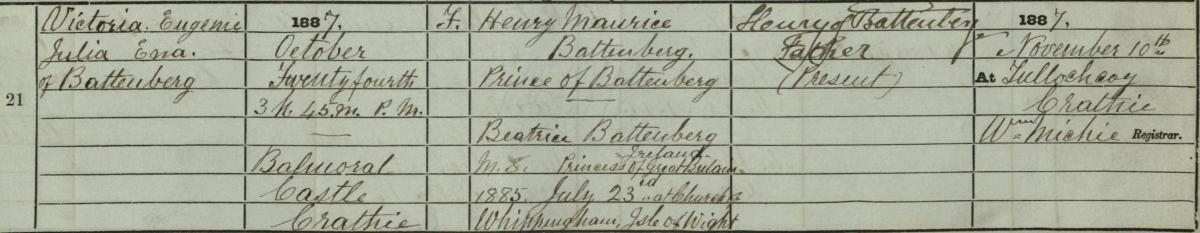 21
Victoria Eugenie
Julia Ena
of Battenberg
1887.
October
Twenty fourth
3 h. 45 m. P. M.
Balmoral
Castle
Crathie
F.
Henry Maurice
Battenberg.
Prince of Battenberg
Beatrice Battenberg
M.S. Princess of Great Britain
Ireland
1885. July 23rd at Church of
Whippingham, Isle of Wight
Henry of Battenberg
Father
(Present)
1887.
November 10th
At Tullochcoy
Crathie
Wm Michie Registrar.